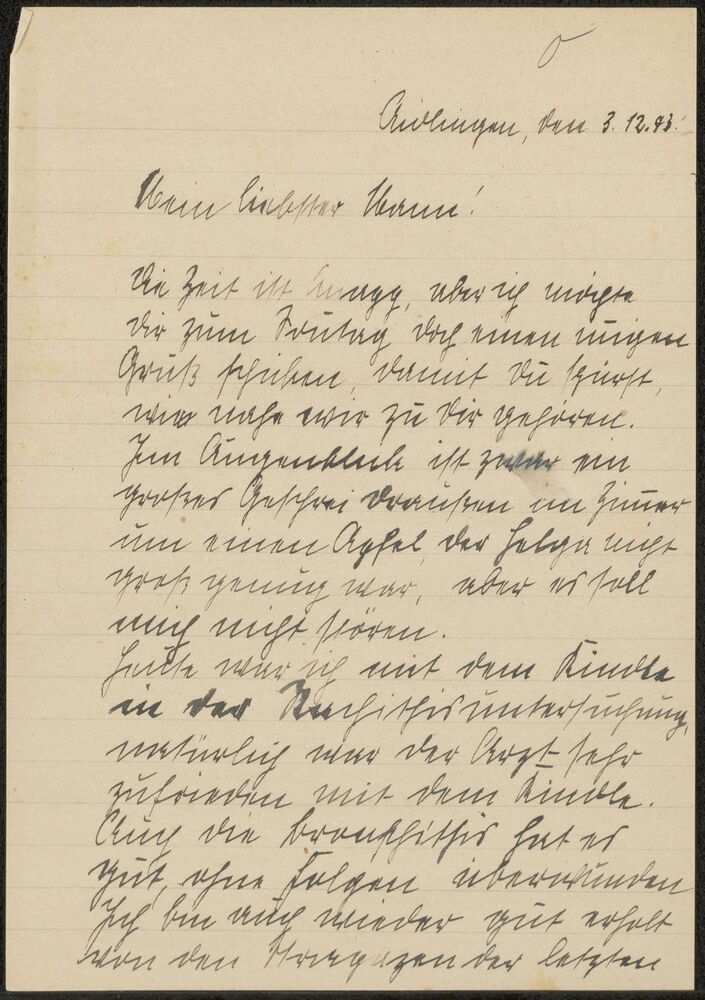 Aidlingen, den 3.12.43.
Mein liebster Mann!
Die Zeit ist knapp, aber ich möchte
dir zum Sonntag doch einen innigen
Gruß schicken, damit du spürst,
wie nahe wir zu dir gehören.
Im Augenblick ist zwar ein
großes Geschrei draußen im Zimmer
um einen Apfel, der Helga nicht
groß genug war, aber es soll
mich nicht stören.
Heute war ich mit dem Kindle
in der Rachithisuntersuchung,
natürlich war der Arzt sehr
zufrieden mit dem Kindle.
Auch die Bronchithis hat es
gut, ohne Folgen überwunden
Ich bin auch wieder gut erholt
von den Strapazen der letzten